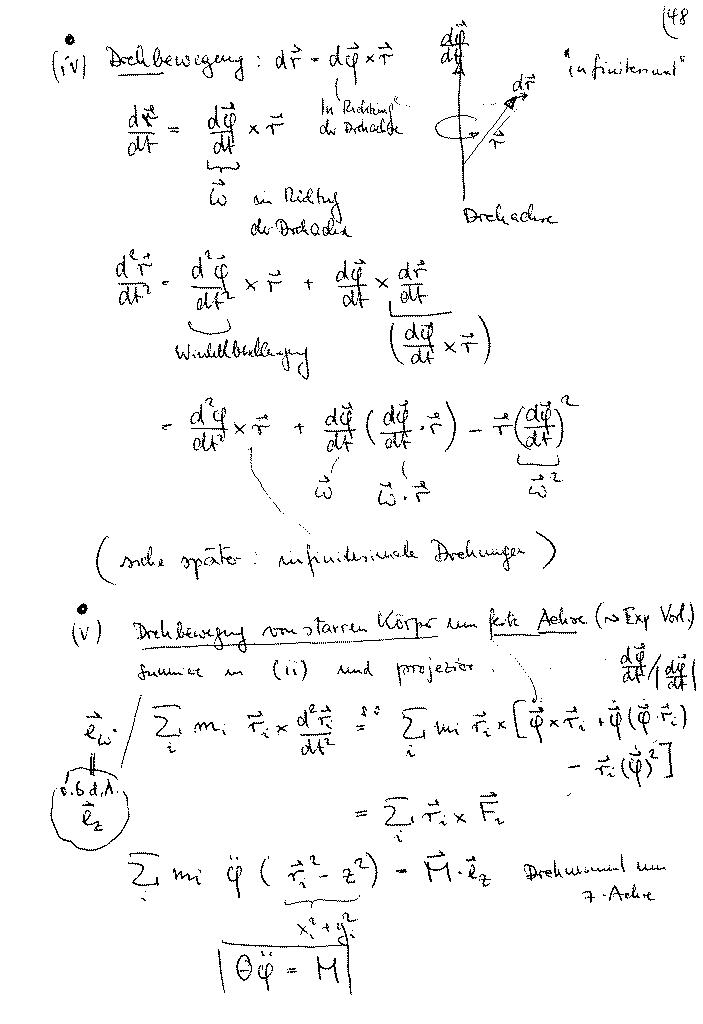 (48
(iv) Drehbewegung : dr⃗ = dφ⃗ × r⃗
"infinitesimal"
dφ⃗/dt
dr⃗
r⃗
Drehachse
dr⃗/dt = dφ⃗/dt × r⃗
In Richtung
der Drehachse
ω⃗ in Richtung
der Drehachse
d²r⃗/dt² = d²φ⃗/dt² × r⃗ + dφ⃗/dt × dr⃗/dt
Winkelbeschleunigung
(dφ⃗/dt × r⃗)
= d²φ⃗/dt² × r⃗ + dφ⃗/dt (dφ⃗/dt · r⃗) - r⃗ (dφ⃗/dt)²
ω⃗ ω⃗ · r⃗ ω⃗²
(siehe später : infinitesimale Drehungen)
(v) Drehbewegung von starren Körper um feste Achse (→ Exp Vorl.)
Summe in (ii) und projeziere.
dφ⃗/dt / |dφ⃗/dt|
Σᵢ mᵢ r⃗ᵢ × d²r⃗ᵢ/dt² = Σᵢ mᵢ r⃗ᵢ × [φ⃗̈ × r⃗ᵢ + φ⃗̇ (φ⃗̇ · r⃗ᵢ)
- r⃗ᵢ (φ⃗̇)²]
e⃗_ω
o.B.d.A.
e⃗_z
= Σᵢ r⃗ᵢ × F⃗ᵢ
Σᵢ mᵢ φ̈ (r⃗ᵢ² - z²) = M⃗ · e⃗_z Drehmoment um
z-Achse
xᵢ² + yᵢ²
Θφ̈ = M